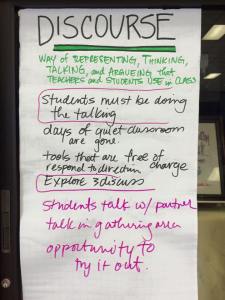 DISCOURSE
WAY OF REPRESENTING, THINKING,
TALKING, and ARGUEING that
TEACHERS and STUDENTS USE in CLASS
Students must be doing
the talking
days of quiet classroom
are gone.
tools that are free of charge
respond to direction
Explore & discuss
Students talk w/ partner
talk in gathering area
opportunity to
try it out.